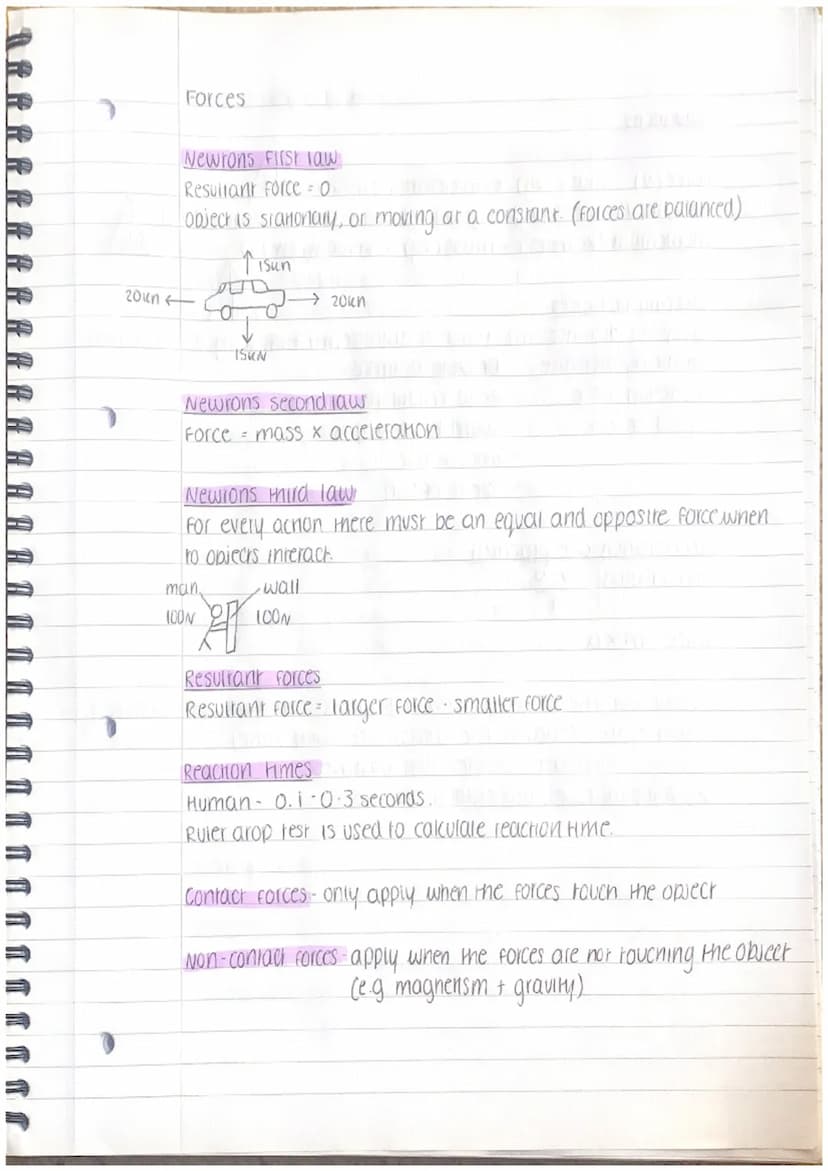 Forces
Newtons First law
Resultant force = 0
Object is stationary, or moving at a constant. (forces are balanced)
15kn
20kn 20kn
15kN
Newtons second law
Force = mass x acceleration
Newtons third law
For every action there must be an equal and opposite force when
to objects interact.
man wall
100N 100N
Resultant forces
Resultant force = larger force - smaller force
Reaction times
Human - 0.1 - 0.3 seconds.
Ruler drop test is used to calculate reaction time.
Contact forces - only apply when the forces touch the object
Non-contact forces - apply when the forces are not touching the object
(e.g magnetism + gravity)